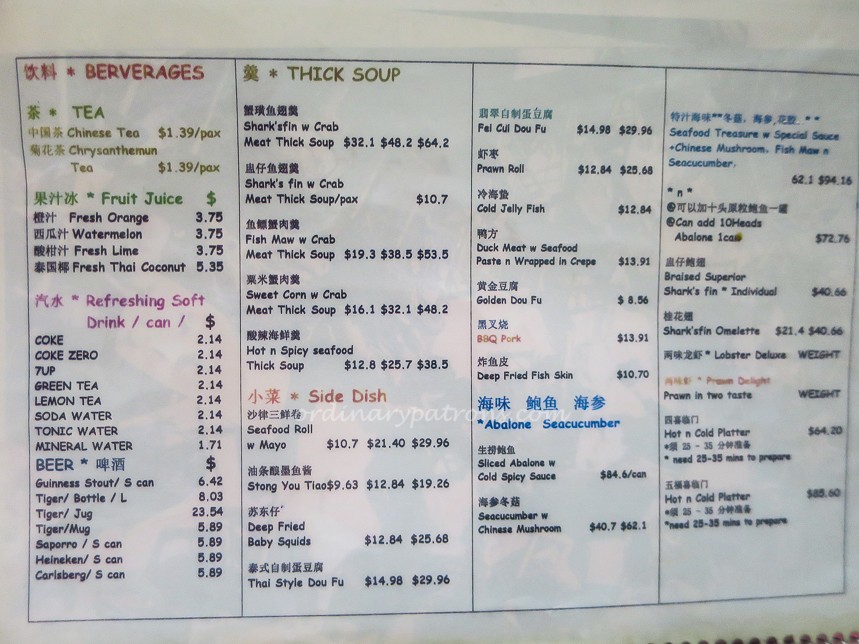 饮料 * BERVERAGES
茶 * TEA
中国茶 Chinese Tea $1.39/pax
菊花茶 Chrysanthemun
Tea $1.39/pax
果汁冰 * Fruit Juice $
橙汁 Fresh Orange 3.75
西瓜汁 Watermelon 3.75
酸柑汁 Fresh Lime 3.75
泰国椰 Fresh Thai Coconut 5.35
汽水 * Refreshing Soft
Drink / can / $
COKE 2.14
COKE ZERO 2.14
7UP 2.14
GREEN TEA 2.14
LEMON TEA 2.14
SODA WATER 2.14
TONIC WATER 2.14
MINERAL WATER 1.71
BEER * 啤酒 $
Guinness Stout/ S can 6.42
Tiger/ Bottle / L 8.03
Tiger/ Jug 23.54
Tiger/Mug 5.89
Saporro / S can 5.89
Heineken/ S can 5.89
Carlsberg/ S can 5.89
羹 * THICK SOUP
蟹璜鱼翅羹
Shark'sfin w Crab
Meat Thick Soup $32.1 $48.2 $64.2
盅仔鱼翅羹
Shark's fin w Crab
Meat Thick Soup/pax $10.7
鱼鳔蟹肉羹
Fish Maw w Crab
Meat Thick Soup $19.3 $38.5 $53.5
粟米蟹肉羹
Sweet Corn w Crab
Meat Thick Soup $16.1 $32.1 $48.2
酸辣海鲜羹
Hot n Spicy seafood
Thick Soup $12.8 $25.7 $38.5
小菜 * Side Dish
沙律三鲜卷
Seafood Roll
w Mayo $10.7 $21.40 $29.96
油条酿墨鱼酱
Stong You Tiao $9.63 $12.84 $19.26
苏东仔
Deep Fried
Baby Squids $12.84 $25.68
泰式自制蛋豆腐
Thai Style Dou Fu $14.98 $29.96
翡翠自制蛋豆腐
Fei Cui Dou Fu $14.98 $29.96
虾枣
Prawn Roll $12.84 $25.68
冷海蛰
Cold Jelly Fish $12.84
鸭方
Duck Meat w Seafood
Paste n Wrapped in Crepe $13.91
黄金豆腐
Golden Dou Fu $ 8.56
黑叉烧
BBQ Pork $13.91
炸鱼皮
Deep Fried Fish Skin $10.70
海味 鲍鱼 海参
*Abalone Seacucumber
生捞鲍鱼
Sliced Abalone w
Cold Spicy Sauce $84.6/can
海参冬菇
Seacucumber w
Chinese Mushroom $40.7 $62.1
特汁海味**冬菇, 海参,花胶 * *
Seafood Treasure w Special Sauce
*Chinese Mushroom, Fish Maw n
Seacucumber.
62.1 $94.16
* n *
@可以加十头原粒鲍鱼一罐
@Can add 10Heads
Abalone 1can $72.76
盅仔鲍翅
Braised Superior
Shark's fin * Individual $40.66
桂花翅
Shark'sfin Omelette $21.4 $40.66
两味龙虾 * Lobster Deluxe WEIGHT
两味虾 * Prawn Delight
Prawn in two taste WEIGHT
四喜临门
Hot n Cold Platter $64.20
*须 25 - 35 分钟准备
* need 25-35 mins to prepare
五福临门
Hot n Cold Platter $85.60
*须 25 - 35 分钟准备
*need 25-35 mins to prepare
ordinarypatrons.com